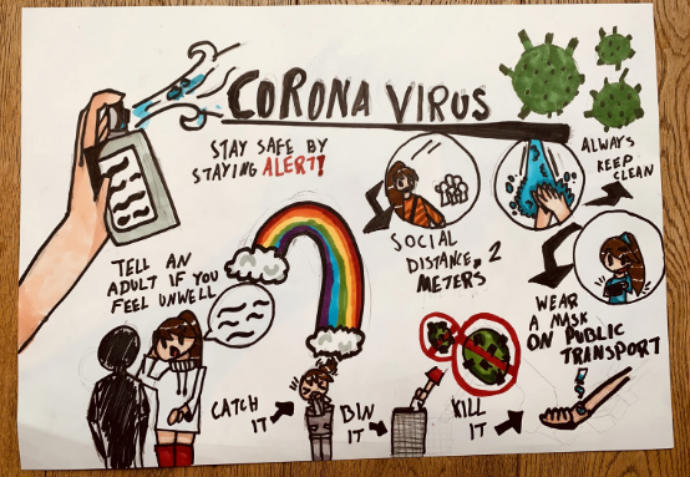 CORONA VIRUS
STAY SAFE BY
STAYING ALERT!
ALWAYS
KEEP
CLEAN
SOCIAL
DISTANCE, 2
METERS
TELL AN
ADULT IF YOU
FEEL UNWELL
WEAR
A MASK
ON PUBLIC
TRANSPORT
CATCH
IT
BIN
IT
KILL
IT